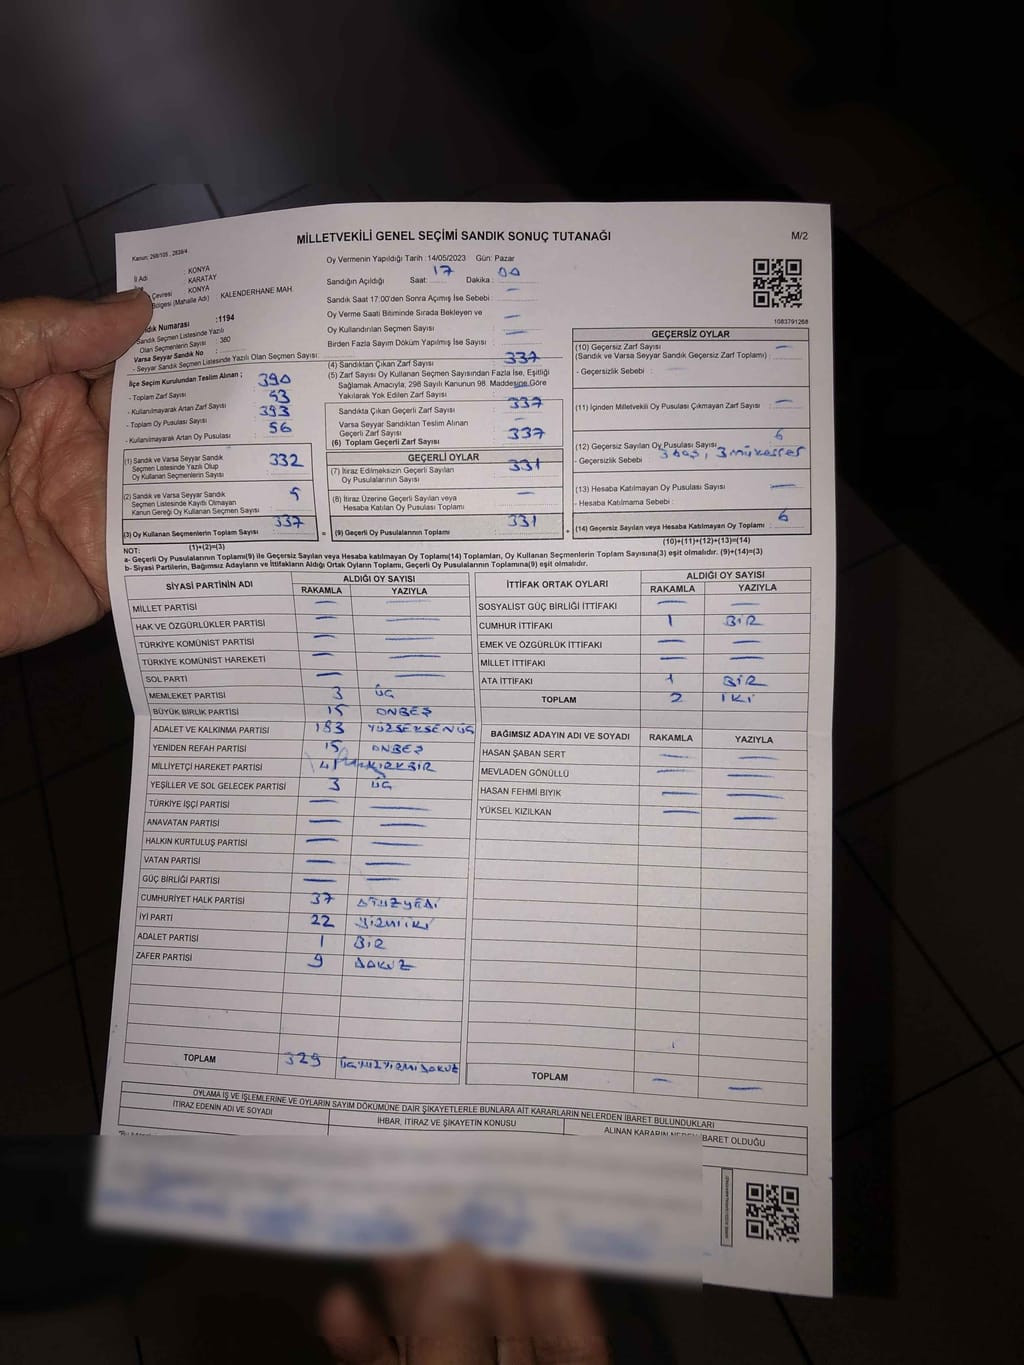 Kanun; 298/105 , 2839/4
MİLLETVEKİLİ GENEL SEÇİMİ SANDIK SONUÇ TUTANAĞI
M/2
İl Adı : KONYA
: KARATAY
Çevresi : KONYA
Bölgesi (Mahalle Adı) KALENDERHANE MAH.
Numarası :1194
Sandık Seçmen Listesinde Yazılı
Olan Seçmenlerin Sayısı : 380
Varsa Seyyar Sandık No
- Seyyar Sandık Seçmen Listesinde Yazılı Olan Seçmen Sayısı:
Oy Vermenin Yapıldığı Tarih : 14/05/2023 Gün: Pazar
Sandığın Açıldığı Saat: 17 Dakika : 00
Sandık Saat 17:00'den Sonra Açımış İse Sebebi : —
Oy Verme Saati Bitiminde Sırada Bekleyen ve
Oy Kullandırılan Seçmen Sayısı : —
Birden Fazla Sayım Döküm Yapılmış İse Sayısı : —
1083791268
İlçe Seçim Kurulundan Teslim Alınan ;
- Toplam Zarf Sayısı : 390
- Kullanılmayarak Artan Zarf Sayısı : 53
- Toplam Oy Pusulası Sayısı : 393
- Kullanılmayarak Artan Oy Pusulası : 56
(1) Sandık ve Varsa Seyyar Sandık
Seçmen Listesinde Yazılı Olup
Oy Kullanan Seçmenlerin Sayısı 332
(2) Sandık ve Varsa Seyyar Sandık
Seçmen Listesinde Kayıtlı Olmayan
Kanun Gereği Oy Kullanan Seçmen Sayısı : 5
(3) Oy Kullanan Seçmenlerin Toplam Sayısı 337
(1)+(2)=(3)
(4) Sandıktan Çıkan Zarf Sayısı : 337
(5) Zarf Sayısı Oy Kullanan Seçmen Sayısından Fazla İse, Eşitliği
Sağlamak Amacıyla, 298 Sayılı Kanunun 98. Maddesine Göre
Yakılarak Yok Edilen Zarf Sayısı : —
Sandıkta Çıkan Geçerli Zarf Sayısı : 337
Varsa Seyyar Sandıktan Teslim Alınan
Geçerli Zarf Sayısı : —
(6) Toplam Geçerli Zarf Sayısı : 337
GEÇERLİ OYLAR
(7) İtiraz Edilmeksizin Geçerli Sayılan
Oy Pusulalarının Sayısı : 331
(8) İtiraz Üzerine Geçerli Sayılan veya
Hesaba Katılan Oy Pusulası Toplamı : —
= (9) Geçerli Oy Pusulalarının Toplamı : 331 +
GEÇERSİZ OYLAR
(10) Geçersiz Zarf Sayısı
(Sandık ve Varsa Seyyar Sandık Geçersiz Zarf Toplamı) : —
- Geçersizlik Sebebi : —
(11) İçinden Milletvekili Oy Pusulası Çıkmayan Zarf Sayısı : —
(12) Geçersiz Sayılan Oy Pusulası Sayısı : 6
- Geçersizlik Sebebi 3 boş, 3 mükerrer
(13) Hesaba Katılmayan Oy Pusulası Sayısı : —
- Hesaba Katılmama Sebebi :
(14) Geçersiz Sayılan veya Hesaba Katılmayan Oy Toplamı : 6
(10)+(11)+(12)+(13)=(14)
NOT:
a- Geçerli Oy Pusulalarının Toplamı(9) ile Geçersiz Sayılan veya Hesaba katılmayan Oy Toplamı(14) Toplamları, Oy Kullanan Seçmenlerin Toplam Sayısına(3) eşit olmalıdır. (9)+(14)=(3)
b- Siyasi Partilerin, Bağımsız Adayların ve İttifakların Aldığı Ortak Oyların Toplamı, Geçerli Oy Pusulalarının Toplamına(9) eşit olmalıdır.
SİYASİ PARTİNİN ADI ALDIĞI OY SAYISI
RAKAMLA YAZIYLA
MİLLET PARTİSİ — —
HAK VE ÖZGÜRLÜKLER PARTİSİ — —
TÜRKİYE KOMÜNİST PARTİSİ — —
TÜRKİYE KOMÜNİST HAREKETİ — —
SOL PARTİ — —
MEMLEKET PARTİSİ 3 ÜÇ
BÜYÜK BİRLİK PARTİSİ 15 ONBEŞ
ADALET VE KALKINMA PARTİSİ 183 YÜZSEKSENÜÇ
YENİDEN REFAH PARTİSİ 15 ONBEŞ
MİLLİYETÇİ HAREKET PARTİSİ 41 KIRKBİR
YEŞİLLER VE SOL GELECEK PARTİSİ 3 ÜÇ
TÜRKİYE İŞÇİ PARTİSİ — —
ANAVATAN PARTİSİ — —
HALKIN KURTULUŞ PARTİSİ — —
VATAN PARTİSİ — —
GÜÇ BİRLİĞİ PARTİSİ — —
CUMHURİYET HALK PARTİSİ 37 OTUZYEDİ
İYİ PARTİ 22 YİRMİİKİ
ADALET PARTİSİ 1 BİR
ZAFER PARTİSİ 9 DOKUZ
TOPLAM 329 ÜÇYÜZYİRMİDOKUZ
İTTİFAK ORTAK OYLARI ALDIĞI OY SAYISI
RAKAMLA YAZIYLA
SOSYALİST GÜÇ BİRLİĞİ İTTİFAKI — —
CUMHUR İTTİFAKI 1 BİR
EMEK VE ÖZGÜRLÜK İTTİFAKI — —
MİLLET İTTİFAKI — —
ATA İTTİFAKI 1 BİR
TOPLAM 2 İKİ
BAĞIMSIZ ADAYIN ADI VE SOYADI RAKAMLA YAZIYLA
HASAN ŞABAN SERT — —
MEVLADEN GÖNÜLLÜ — —
HASAN FEHMİ BIYIK — —
YÜKSEL KIZILKAN — —
TOPLAM — —
OYLAMA İŞ VE İŞLEMLERİNE VE OYLARIN SAYIM DÖKÜMÜNE DAİR ŞİKAYETLERLE BUNLARA AİT KARARLARIN NELERDEN İBARET BULUNDUKLARI
İTİRAZ EDENİN ADI VE SOYADI İHBAR, İTİRAZ VE ŞİKAYETİN KONUSU ALINAN KARARIN NEDEN İBARET OLDUĞU